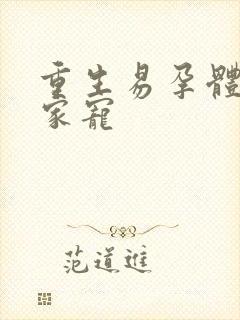 重生易孕體
家寵
范道進